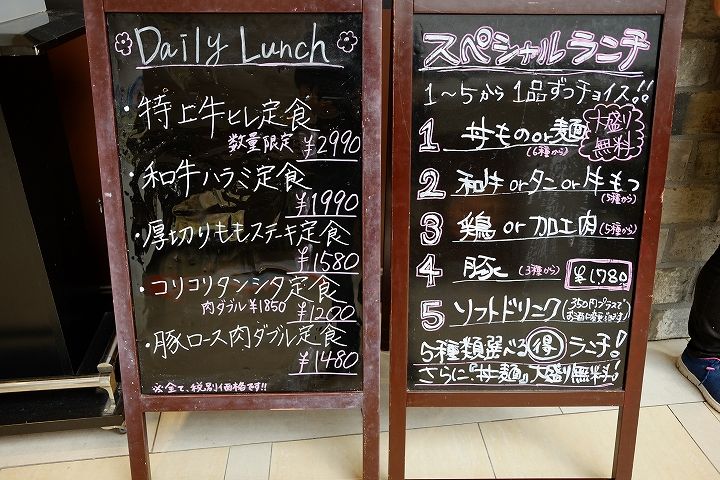 Daily Lunch
・特上牛ヒレ定食
数量限定 ¥2990
・和牛ハラミ定食
¥1990
・厚切りももステーキ定食
¥1580
・コリコリタンシタ定食
肉ダブル¥1850 ¥1200
・豚ロース肉ダブル定食
¥1480
※全て、税別価格です!!
スペシャルランチ
1〜5から1品ずつチョイス!!
1 丼ものor麺
(6種から)
大盛り
無料
2 和牛orタンor牛もつ
(5種から)
3 鶏or加工肉(5種から)
4 豚(3種から) ¥1,780
5 ソフトドリンク
350円プラスで
お酒に変更できます!
5種類選べる得ランチ!
さらに、『丼麺』大盛り無料!